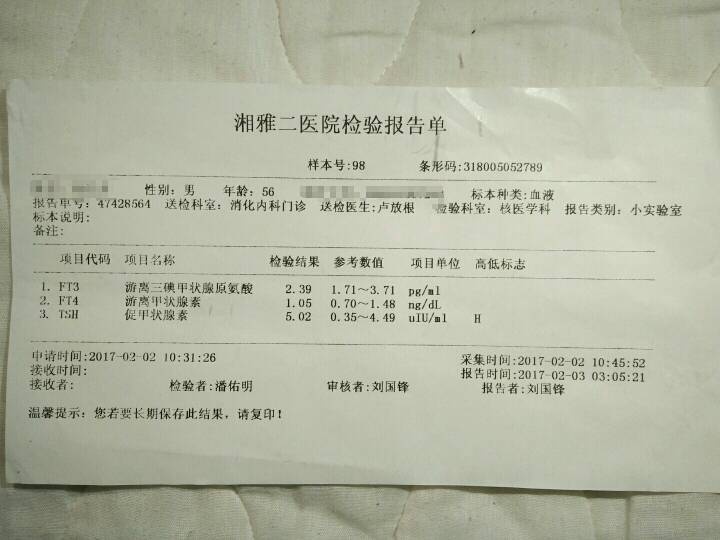 湘雅二医院检验报告单
样本号:98 条形码:318005052789
性别: 男 年龄: 56 标本种类:血液
报告单号: 47428564 送检科室: 消化内科门诊 送检医生:卢放根 检验科室: 核医学科 报告类别: 小实验室
标本说明:
备注:
项目代码 项目名称 检验结果 参考数值 项目单位 高低标志
1. FT3 游离三碘甲状腺原氨酸 2.39 1.71～3.71 pg/ml
2. FT4 游离甲状腺素 1.05 0.70～1.48 ng/dL
3. TSH 促甲状腺素 5.02 0.35～4.49 uIU/ml H
申请时间:2017-02-02 10:31:26 采集时间:2017-02-02 10:45:52
接收时间: 报告时间:2017-02-03 03:05:21
接收者: 检验者:潘佑明 审核者:刘国锋 报告者:刘国锋
温馨提示: 您若要长期保存此结果, 请复印!